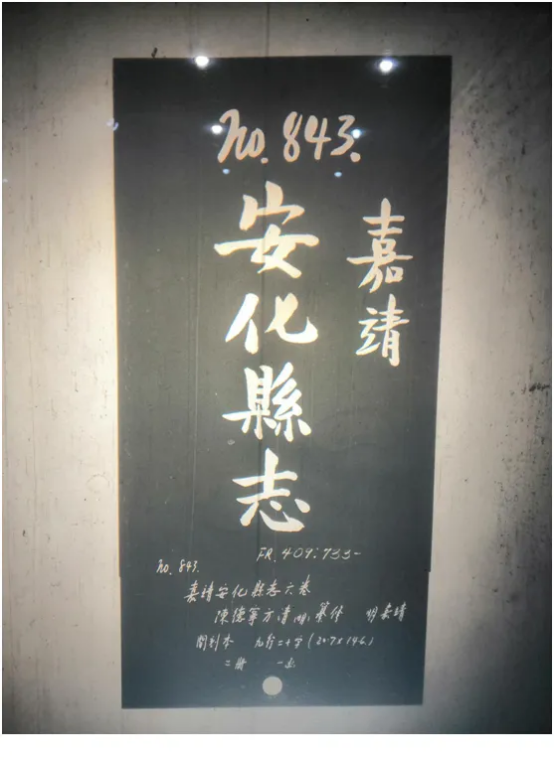 no. 843.
嘉靖
安化縣志
FR. 409:733-
no. 843.
嘉靖安化縣志六卷
陳德寧方清 纂修 明嘉靖
間刻本 九行二十字(20.7x14.6)
二冊